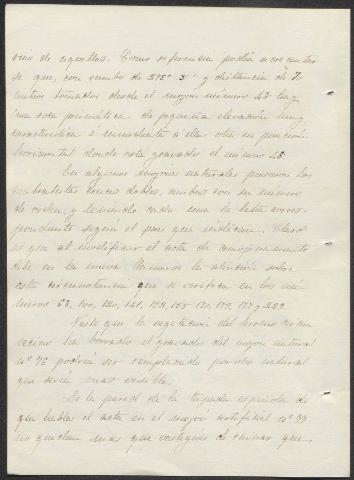 rias de aquellas. Como referencia podia anotarse
se que, con rumbo de 215° 3' y distancia de 70
metros tomados desde el mojón número 45 hay
una roca prismática de pequeña elevación muy
característica é inmediata á ella otra en posición
horizontal donde está gravado el número 45.
En algunos mojones naturales pusieron los
contratistas cruces dobles, ambas con su número
de orden, y teniendo cada una la letra corres-
pondiente según el pais que indican. Claro
es que al modificar el acta de amojonamiento
debe en la nueva llamarse la atención sobre
esta circunstancia que se verifica en los nú-
meros 63, 120, 141, 153, 155 170, 175, 177 y 223
Visto que la vegetación del terreno circun
vecino ha borrado el gravado del mojon natural
nº 75 podría ser remplazado por otro natural
que sería mas visible.
De la pared de la tapada española de
que habla el acta en el mojón artificial nº 79
no quedan mas que vestigios de ruinas que